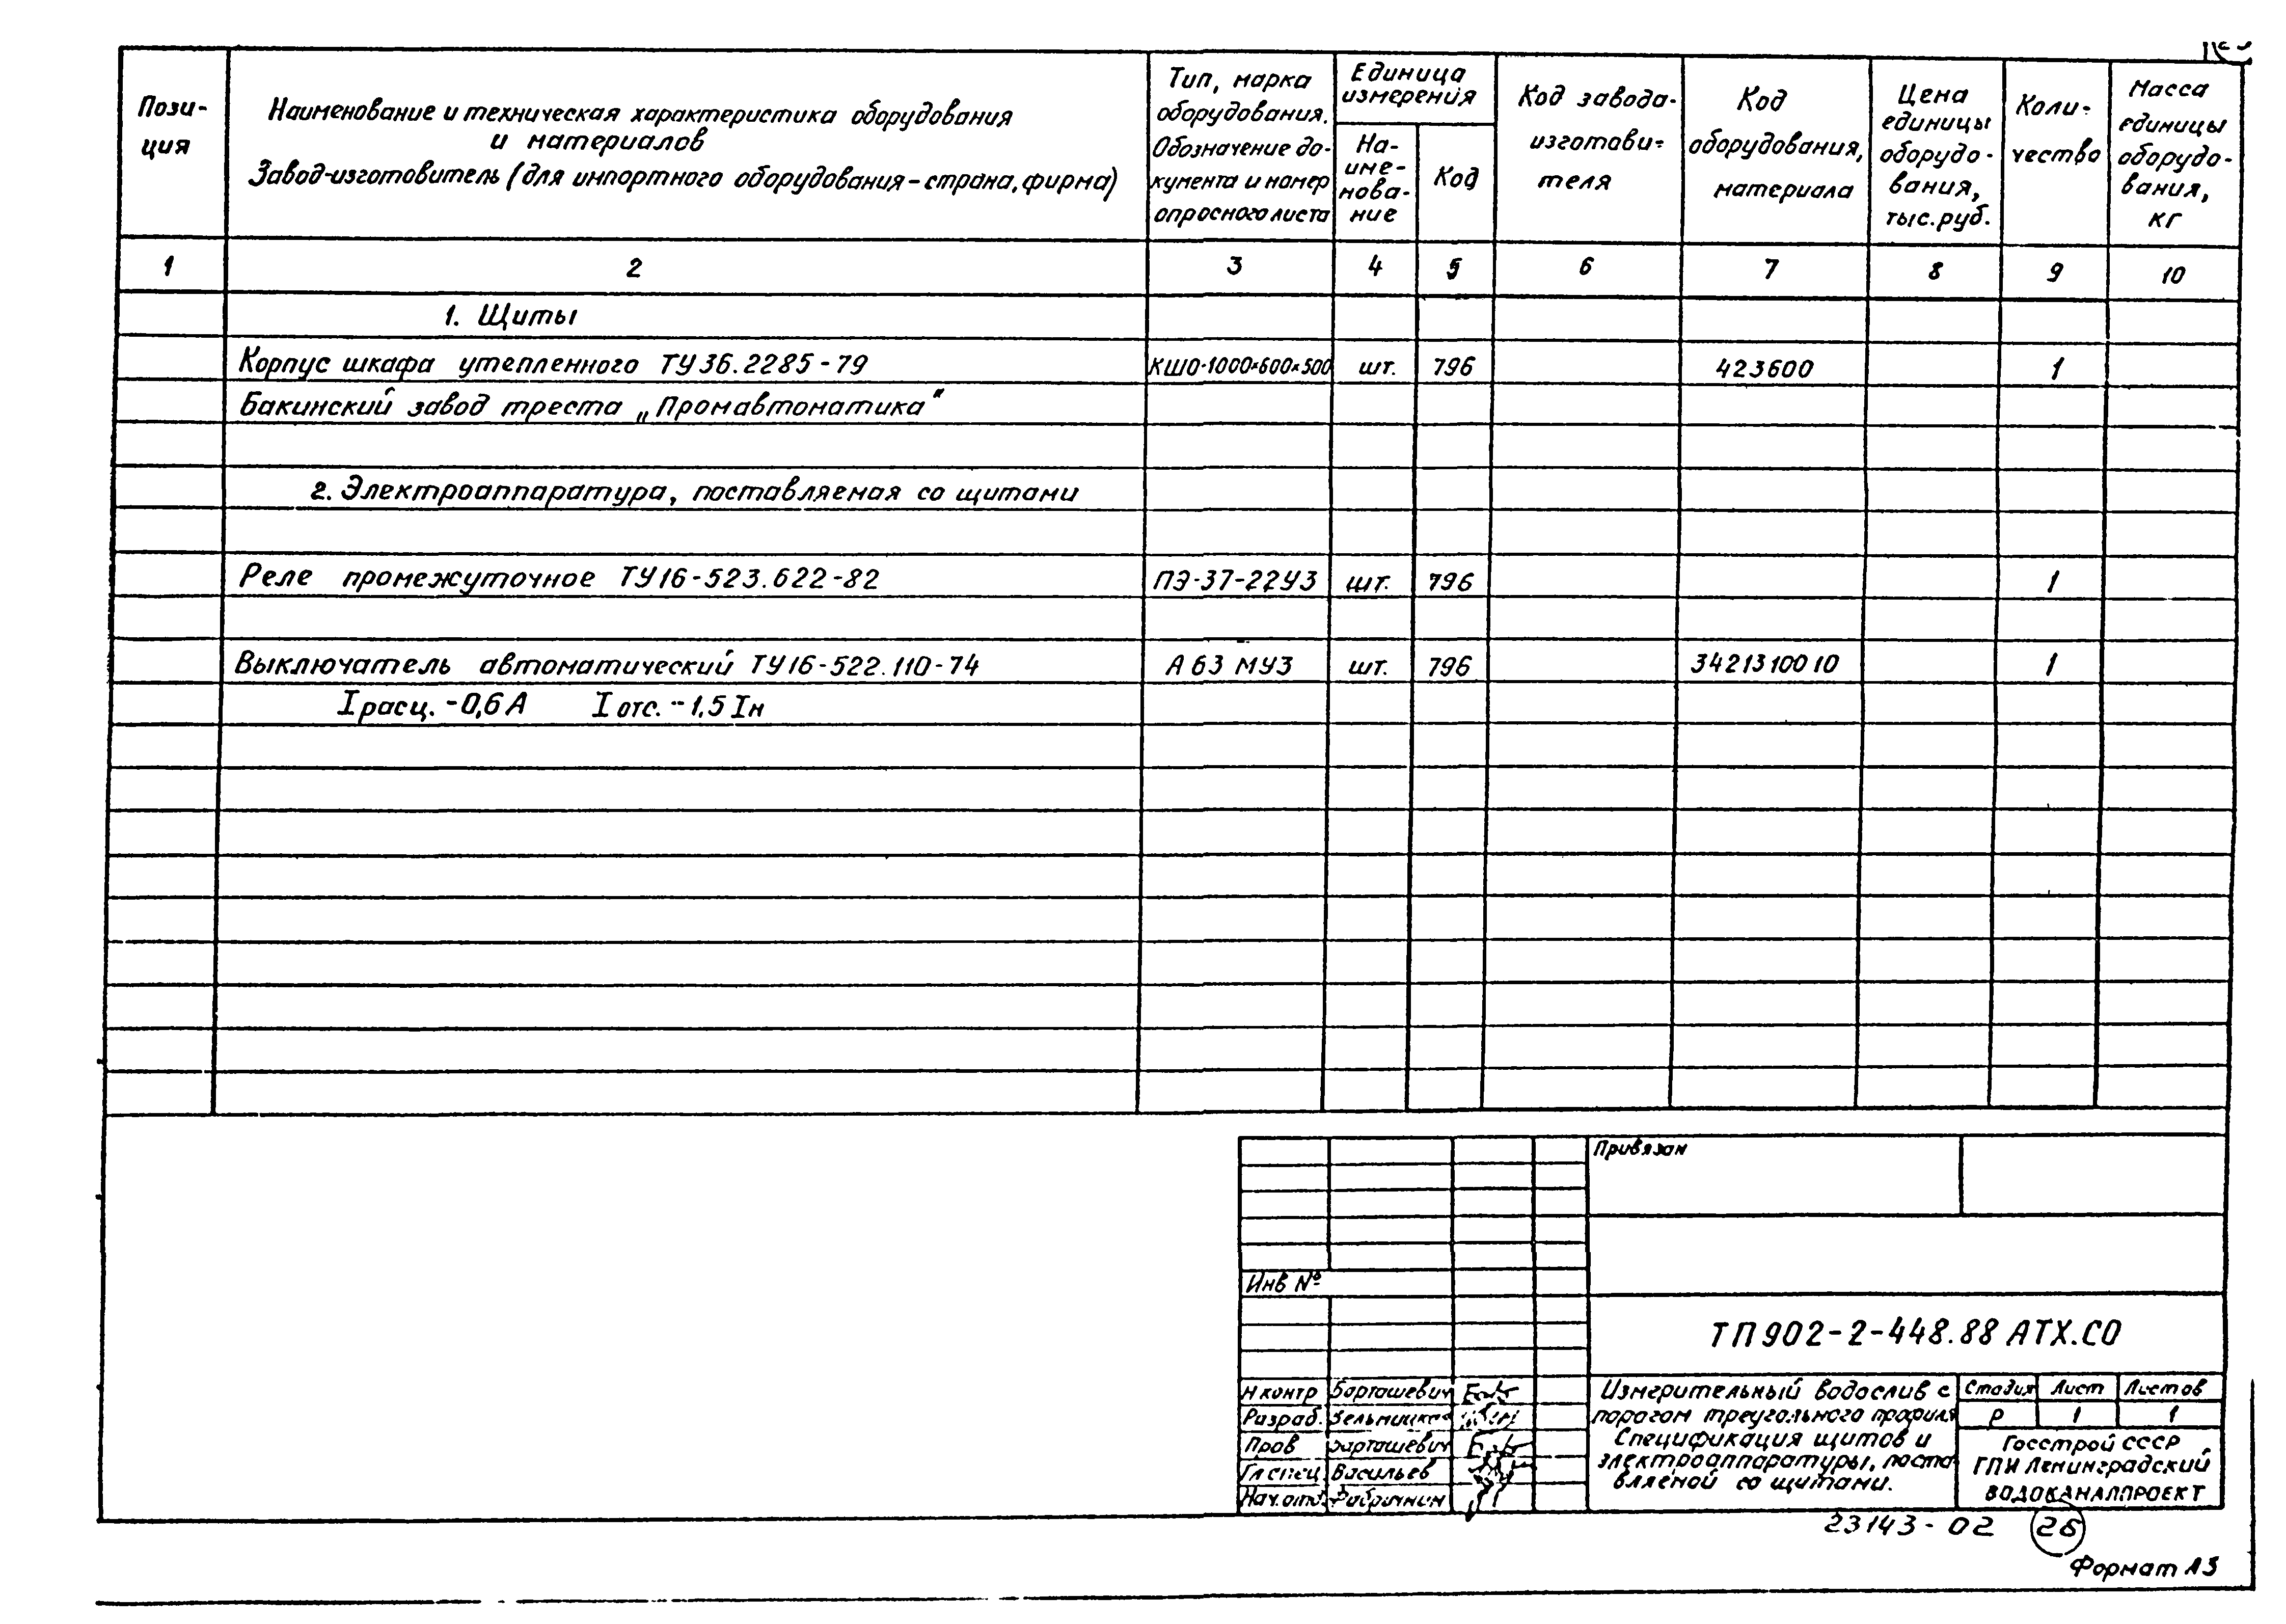 Пози-
ция
Наименование и техническая характеристика оборудования
и материалов
Завод-изготовитель (для импортного оборудования – страна, фирма)
Тип, марка
оборудования.
Обозначение до-
кумента и номер
опросного листа
Единица
измерения
На-
име-
нова-
ние
Код
Код завода-
изготови-
теля
Код
оборудования,
материала
Цена
единицы
оборудо-
вания,
тыс. руб.
Коли-
чество
Масса
единицы
оборудо-
вания,
кг
1 2 3 4 5 6 7 8 9 10
1. Щиты
Корпус шкафа утепленного ТУ36.2285-79 КШО-1000×600×500 шт. 796 423600 1
Бакинский завод треста „Промавтоматика"
2. Электроаппаратура, поставляемая со щитами
Реле промежуточное ТУ16-523.622-82 ПЭ-37-22У3 шт. 796 1
Выключатель автоматический ТУ16-522.110-74 А63 МУ3 шт. 796 3421310010 1
I расц. - 0,6 А I отс. - 1,5 Iн
Привязан
Инв №
ТП 902-2-448.88 АТХ.СО
Н контр Барташевич
Разраб.
Пров Барташевич
Гл спец Васильев
Нач. отд.
Измерительный водослив с
порогом треугольного профиля
Спецификация щитов и
электроаппаратуры, поста
вляемой со щитами.
Стадия Лист Листов
Р 1 1
Госстрой СССР
ГПИ Ленинградский
ВОДОКАНАЛПРОЕКТ
23143-02 26
Формат А3